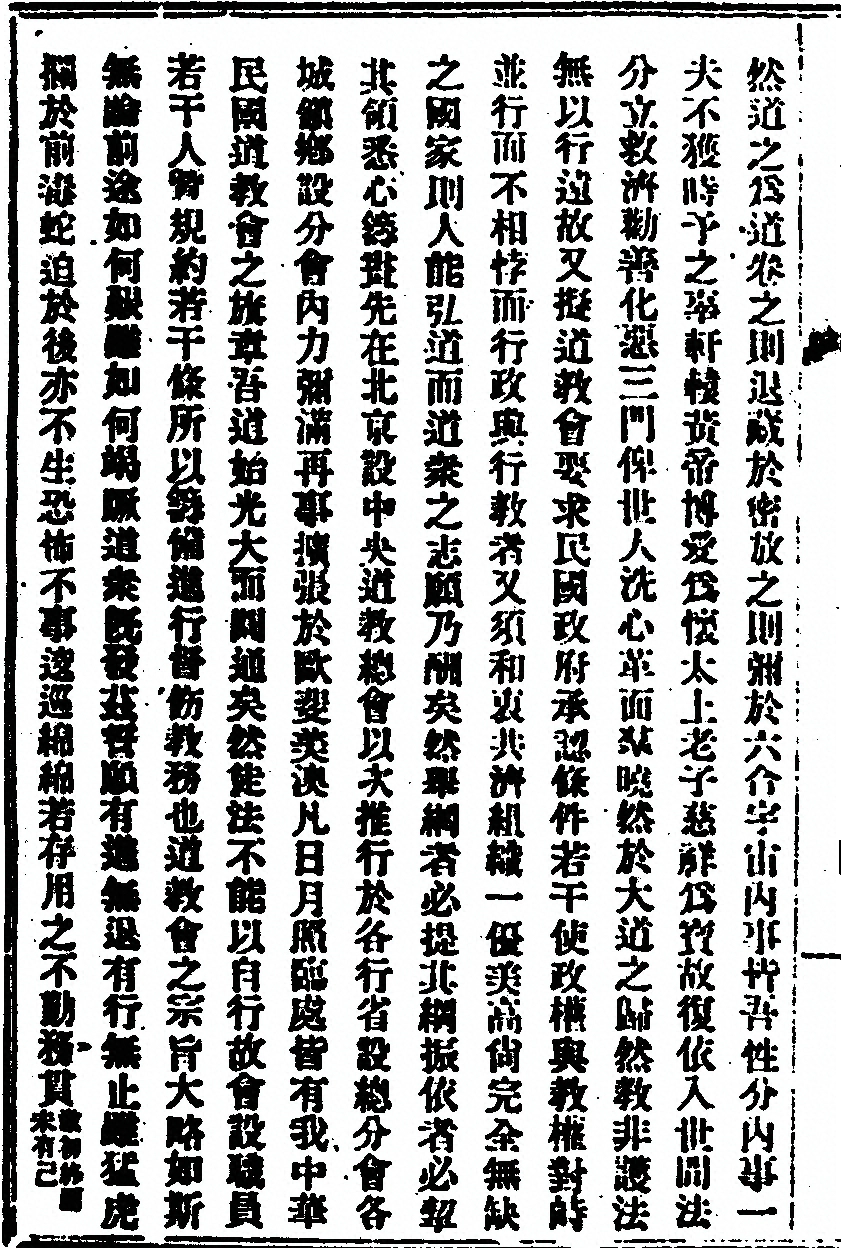 然道之爲道卷之則退藏於密放之則彌於六合宇宙內事皆吾性分內事一
夫不獲時予之辜軒轅黃帝博愛爲懷太上老子慈祥爲寶故復依入世間法
分立救濟勸善化惡三門俾世人洗心革面羣曉然於大道之歸然教非護法
無以行遠故又擬道教會要求民國政府承認條件若干使政權與教權對峙
並行而不相悖而行政與行教者又須和衷共濟組織一優美高尙完全無缺
之國家則人能弘道而道衆之志願乃酬矣然舉綱者必提其綱振依者必挈
其領悉心籌畫先在北京設中央道教總會以次推行於各行省設總分會各
城鎭鄉設分會內力彌滿再事擴張於歐斐美澳凡日月照臨處皆有我中華
民國道教會之旂章吾道始光大而闢通矣然徒法不能以自行故會設職員
若干人會規約若干條所以籌備進行督飭教務也道教會之宗旨大略如斯
無論前途如何艱難如何竭蹶道衆既發玆誓願有進無退有行無止雖猛虎
攔於前毒蛇迫於後亦不生恐怖不事逡巡綿綿若存用之不勤務貫
最初終願
未有己